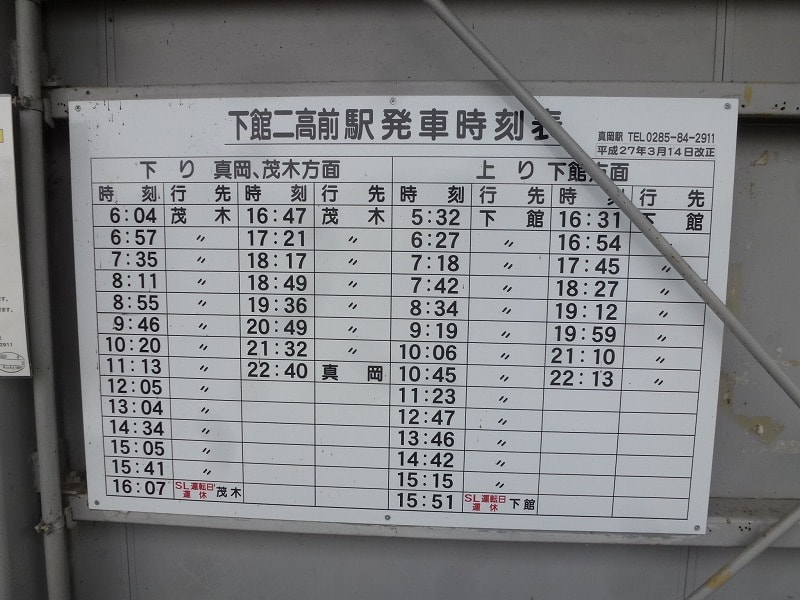 下館二高前駅発車時刻表
真岡駅 TEL0285-84-2911
平成27年3月14日改正
下り 真岡、茂木方面 上り 下館方面
時刻 行先 時刻 行先 時刻 行先 時刻 行先
6:04 茂木 16:47 茂木 5:32 下館 16:31 下館
6:57 〃 17:21 〃 6:27 〃 16:54 〃
7:35 〃 18:17 〃 7:18 〃 17:45 〃
8:11 〃 18:49 〃 7:42 〃 18:27 〃
8:55 〃 19:36 〃 8:34 〃 19:12 〃
9:46 〃 20:49 〃 9:19 〃 19:59 〃
10:20 〃 21:32 〃 10:06 〃 21:10 〃
11:13 〃 22:40 真岡 10:45 〃 22:13 〃
12:05 〃 11:23 〃
13:04 〃 12:47 〃
14:34 〃 13:46 〃
15:05 〃 14:42 〃
15:41 〃 15:15 〃
16:07 SL運転日運休 茂木 15:51 SL運転日運休 下館